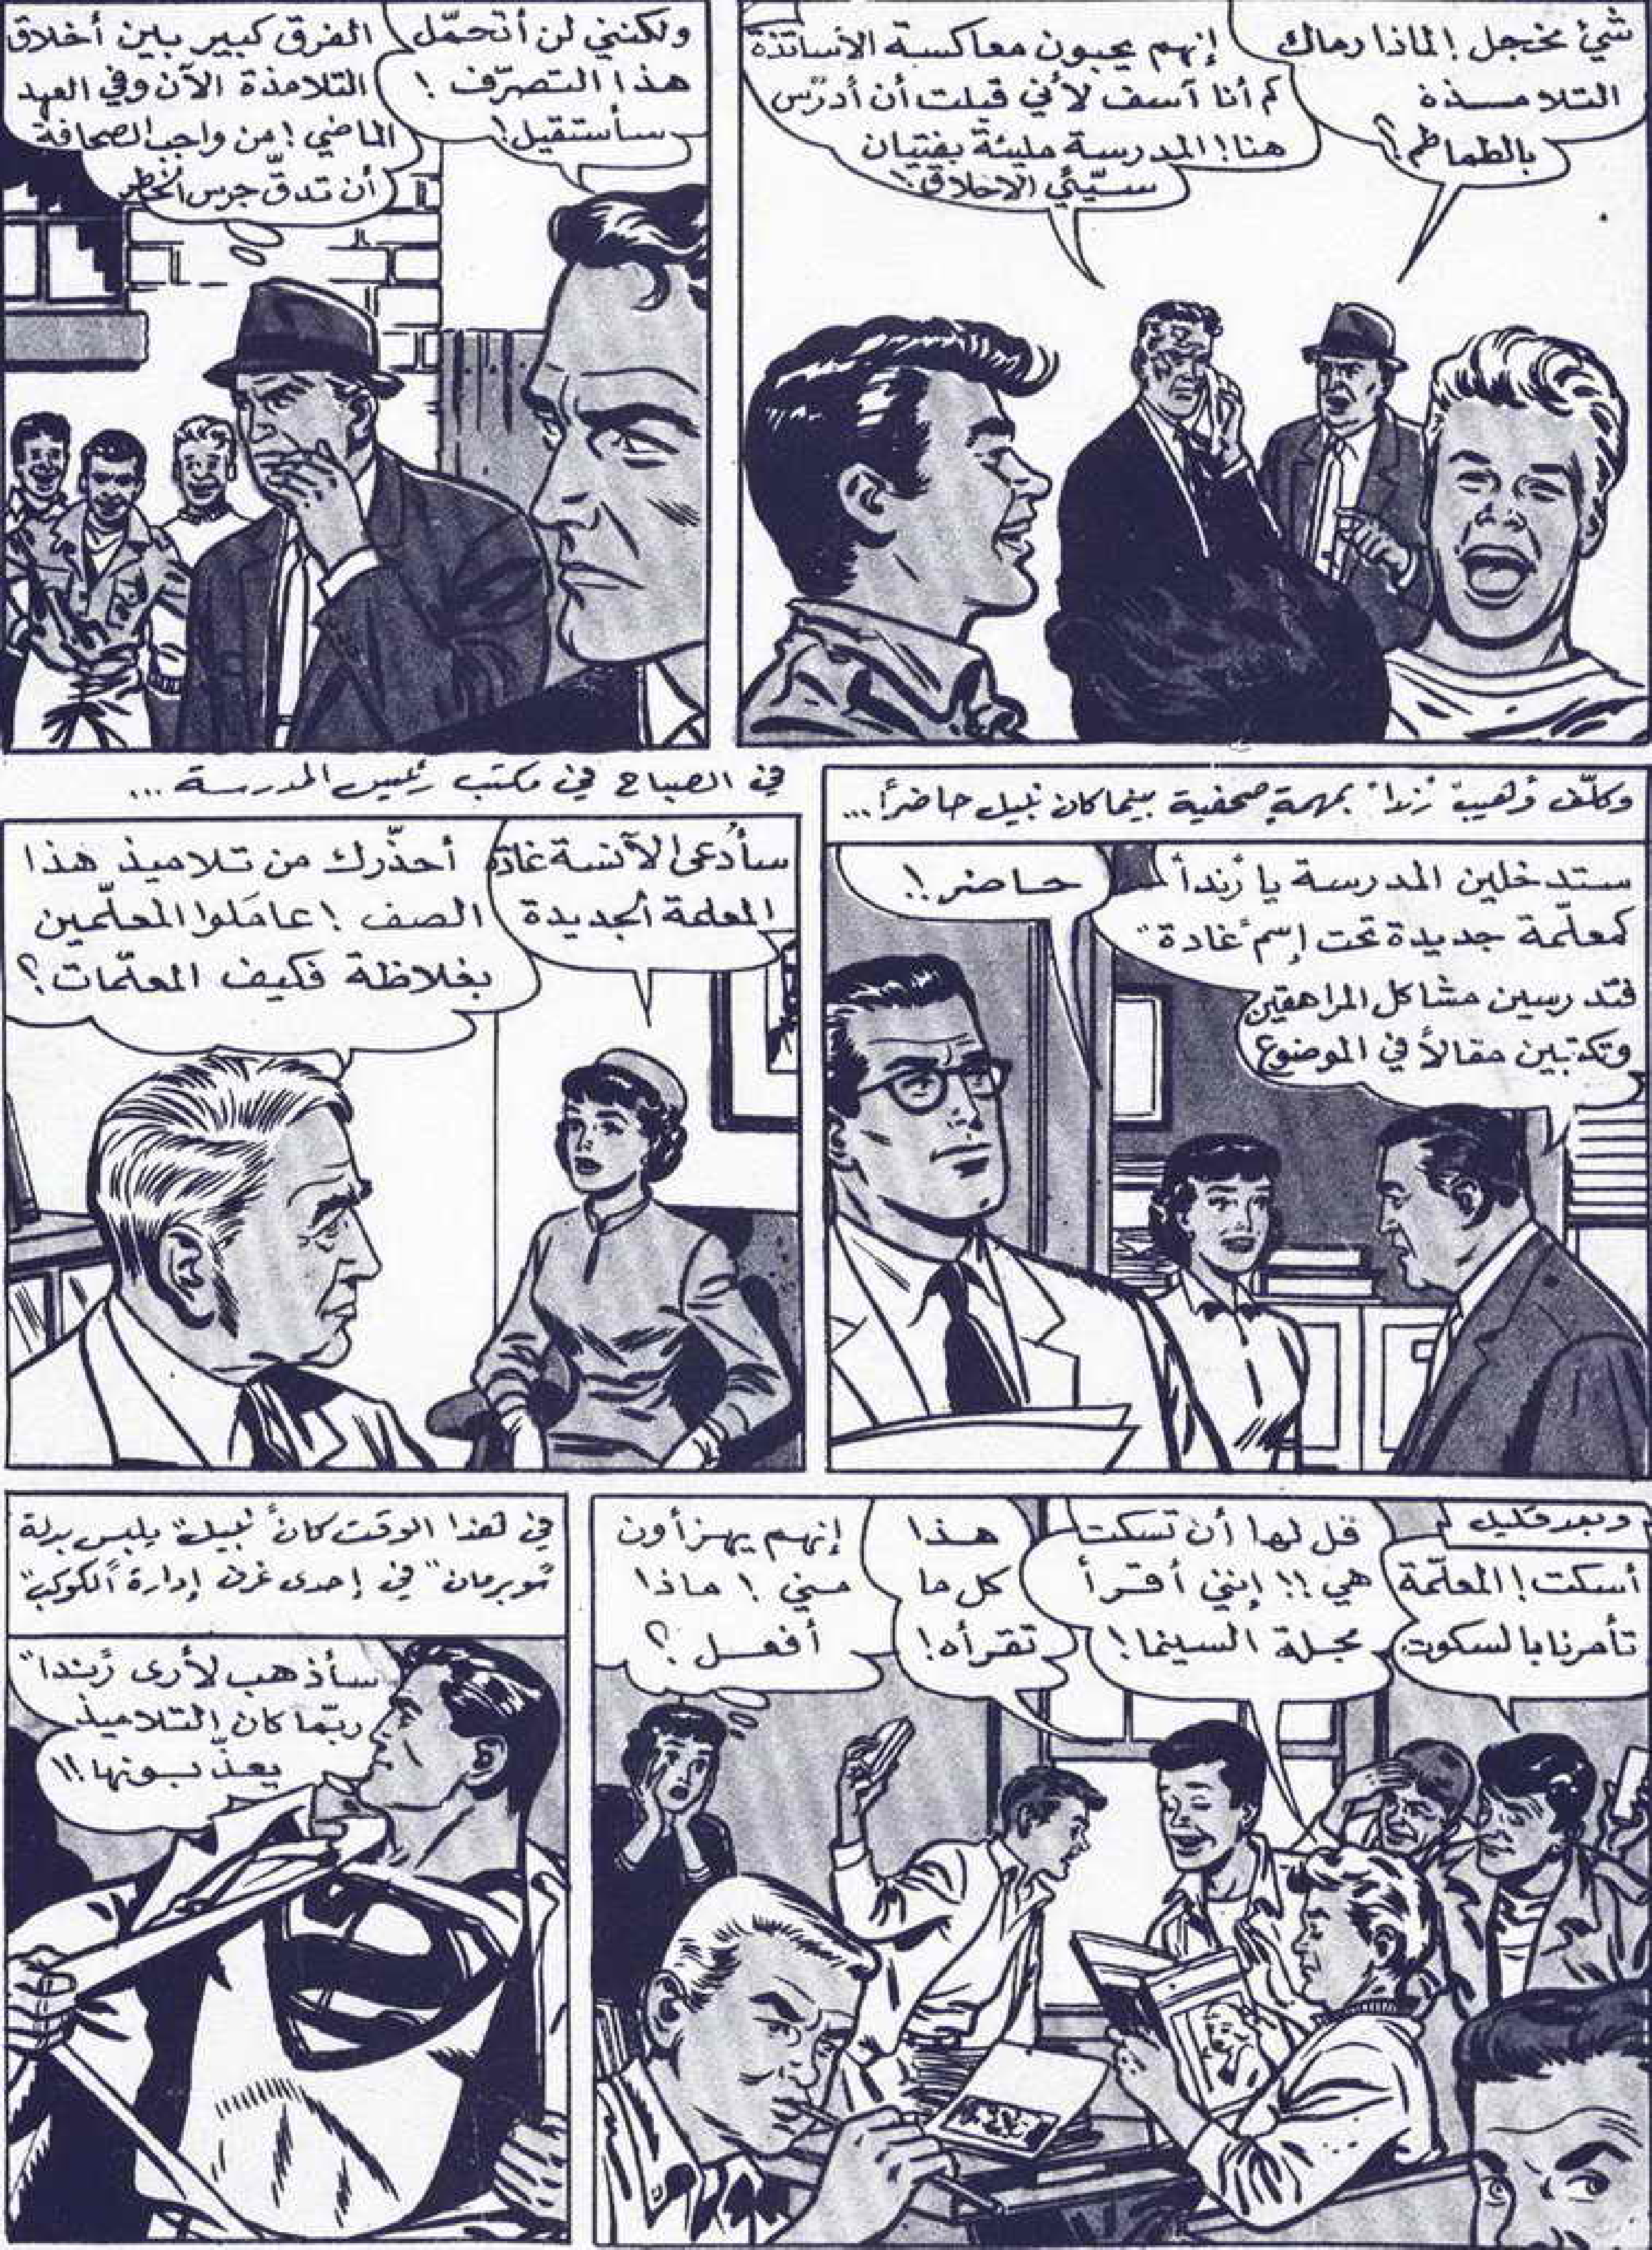 شيء مخجل! لماذا رماك
التلامذة
بالطماطم؟
إنهم يحبون معاكسة الأساتذة
كم أنا آسف لأني قبلت أن أدرّس
هنا! المدرسة مليئة بفتيان
سيّئي الأخلاق!
ولكنني لن أتحمّل
هذا التصرّف!
سأستقيل!
الفرق كبير بين أخلاق
التلامذة الآن وفي العهد
الماضي! من واجب الصحافة
أن تدقّ جرس الخطر
وكلّف وهيب "رندا" بمهمة صحفية بينما كان نبيل حاضراً...
ستدخلين المدرسة يا "رندا"
كمعلّمة جديدة تحت إسم "غادة"
فتدرسين مشاكل المراهقين
وتكتبين مقالاً في الموضوع
حاضر!!
في الصباح في مكتب رئيس المدرسة...
سأُدعى الآنسة غادة
المعلمة الجديدة
أحذّرك من تلاميذ هذا
الصف! عاملوا المعلّمين
بغلاظة فكيف المعلّمات؟
وبعد قليل
أسكت! المعلّمة
تأمرنا بالسكوت
قل لها أن تسكت
هي!! إنني أقرأ
مجلة السينما!
هذا
كل ما
تقرأه!
إنهم يهزأون
مني! ماذا
أفعل؟
في هذا الوقت كان "نبيل" يلبس بدلة
"سوبرمان" في إحدى غرف إدارة "الكوكب"
سأذهب لأرى "رندا"
ربّما كان التلاميذ
يعذّبونها!!